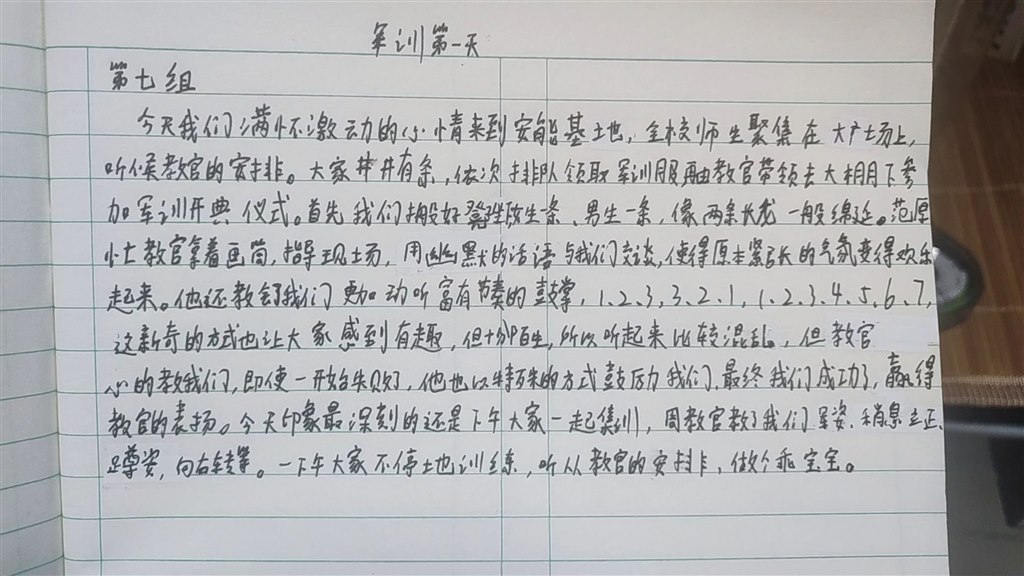 军训第一天
第七组
今天我们满怀激动的心情来到安能基地，全校师生聚集在大广场上，
听候教官的安排。大家井井有条，依次排队领取军训服再由教官带领去大棚下参
加军训开典仪式。首先我们搬好凳女生一条、男生一条，像两条长龙一般绵延。范愿
忙教官拿着画筒，指导现场，用幽默的话语与我们交谈，使得原本紧张的气氛变得欢乐
起来。他还教会了我们更加动听富有节奏的鼓掌，1.2.3,3.2.1,1.2.3.4.5.6.7,
这新奇的方式也让大家感到有趣，但十分陌生，所以听起来比较混乱。但教官
心的教我们，即使一开始失败了，他也以特殊的方式鼓励我们，最终我们成功了，赢得
教官的表扬。今天印象最深刻的还是下午大家一起集训，周教官教了我们军姿、稍息立正、
蹲姿，向右转等。一下午大家不停土地训练，听从教官的安排，做个乖宝宝。